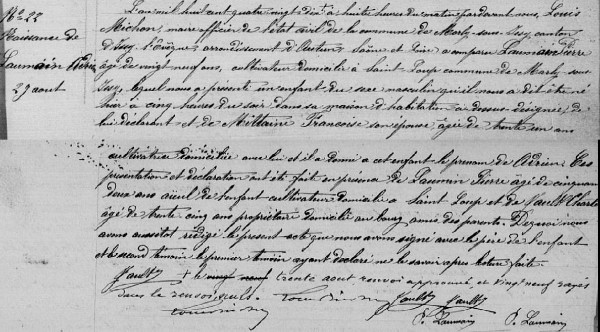 No 22
Naissance de
Laumain Adrien
29 août
L'an mil huit cent quatre vingt dix à huit heures du matin pardevant nous, Louis
Michon, maire officier de l'état civil de la commune de Marly-sous-Issy, canton
d'Issy-l'Evêque arrondissement d'Autun Saône et Loire a comparu Laumain Pierre
âgé de vingt neuf ans, cultivateur domicilié à Saint-Loup commune de Marly-sous-
Issy, lequel nous a présenté un enfant du sexe masculin qu'il nous a dit être né
hier à cinq heures du soir dans sa maison d'habitation ci-dessus désignée, de
lui déclarant et de Miltaine Françoise son épouse âgée de trente un ans
cultivatrice domiciliée avec lui et il a donné a cet enfant le prénom de Adrien. Ces
présentation et déclaration ont été fait en présence de Laumin Pierre âgé de cinquan
deux ans aïeul de l'enfant cultivateur domicilié a Saint Loup et de Vault Charle
âgé de trente cinq ans propriétaire domicilié au bourg amis des parents. De quoi nous
avons aussitôt rédigé le présent acte que nous avons signé avec le père de l'enfant
et le second témoin le premier témoin ayant déclaré ne le savoir après lecture faite.
Vault + le vingt neuf trente aout renvoi approuvé, et vingt neuf rayés
dans le renvoi nuls. Vault Vault
P. Laumain P. Laumain